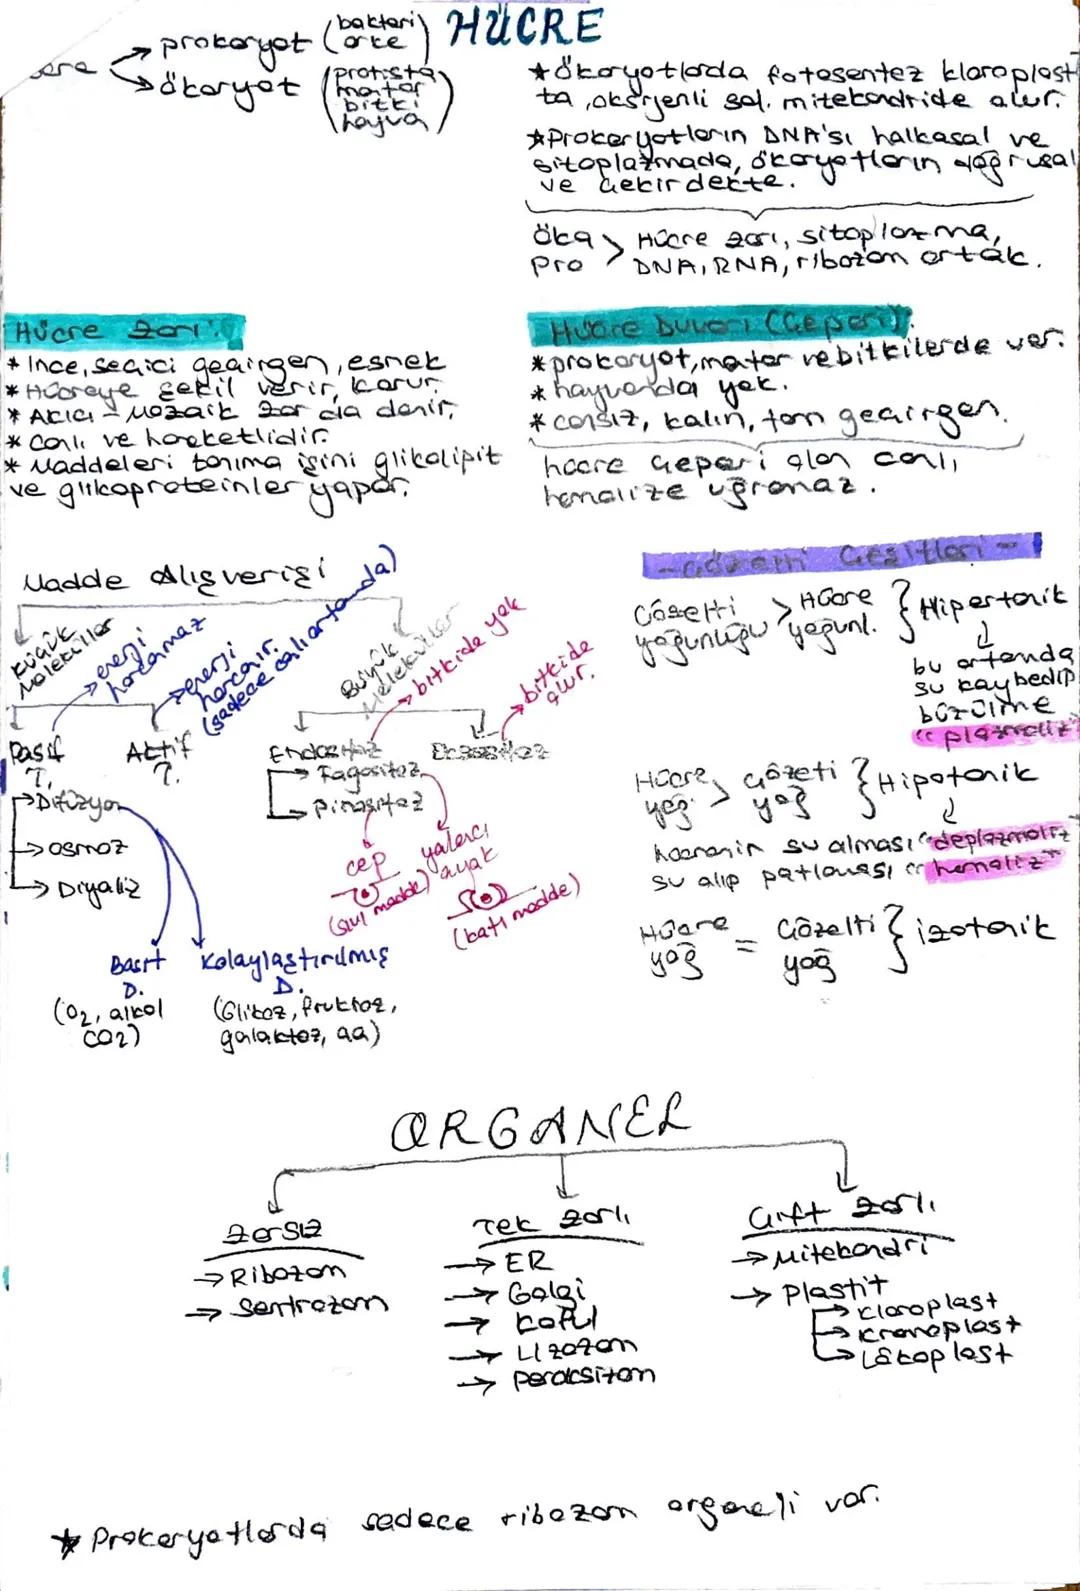 HÜCRE
prokaryot (bakteri
arke)
ökaryot (protista
mantar
bitki
hayvan)
*ökaryotlarda fotosentez kloroplast
ta, oksijenli sol. mitokondride olur.
*Prokaryotların DNA'sı halkasal ve
sitoplazmada, ökaryotların doğrusal
ve çekirdekte.
öka > Hücre zarı, sitoplazma,
pro DNA, RNA, ribozom ortak.
Hücre zarı:
* İnce, seçici geçirgen, esnek
* Hücreye şekil verir, korur.
* Akıcı-Mozaik zar da denir.
* Canlı ve hareketlidir.
* Maddeleri tanıma işini glikolipit
ve glikoproteinler yapar.
Hücre Duvarı (Çeperi):
*prokaryot, mantar ve bitkilerde var.
*hayvanda yok.
*cansız, kalın, tam geçirgen.
hücre çeperi olan canlı,
hemolize uğramaz.
Madde Alışverişi
küçük
Moleküller
Büyük
Moleküller
enerji
harcamaz
enerji
harcanır.
(sadece canlı ortamda)
bitkide yok
bitkide
olur.
Pasif
T.
Aktif
T.
Endositoz
Ekzositoz
→ Difüzyon
→ osmoz
→ Diyaliz
→ Fagositoz
→ pinositoz
cep
(sıvı madde)
yalancı
ayak
(katı madde)
Basit
D.
(O2, alkol
CO2)
Kolaylaştırılmış
D.
(Glikoz, fruktoz,
galaktoz, aa)
- Çözelti Çeşitleri -
Çözelti
yoğunluğu > Hücre
yoğunl. } Hipertonik
bu ortamda
su kaybedip
büzülme
"plazmoliz
Hücre
yoğ. > Çözeti
yoğ } Hipotonik
hücrenin su alması "deplazmoliz
su alıp patlaması "hemoliz"
Hücre
yoğ = Çözelti
yoğ } izotonik
ORGANEL
Zarsız
→ Ribozom
→ Sentrozom
Tek zarlı
→ ER
→ Golgi
→ koful
→ Lizozom
→ peroksizom
Çift zarlı
→ Mitokondri
→ Plastit
→ kloroplast
→ kromoplast
→ Lökoplast
* Prokaryotlarda sadece ribozom organeli var.